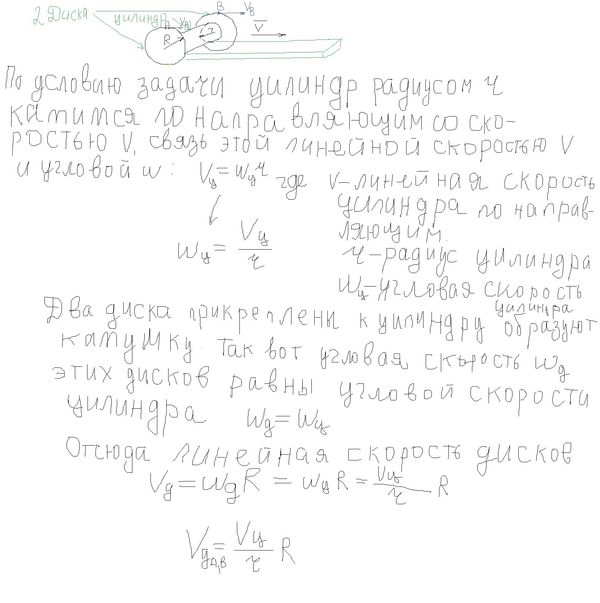 2 Диска
цилиндр
A V_A B V_B
R r V
По условию задачи цилиндр радиусом r
катимся по направляющим со ско-
ростью V, связь этой линейной скоростью V
и угловой w: V_ц = w_ц r где V-линейная скорость
цилиндра по направ-
ляющим.
w_ц = V_ц / r
r-радиус цилиндра
w_ц-угловая скорость
цилиндра
Два диска прикреплени к цилиндру образуют
катушку. Так вот угловая скорость w_д
этих дисков равны угловой скорости
цилиндра w_д = w_ц
Отсюда линейная скорость дисков
V_д = w_д R = w_ц R = V_ц / r R
V_д A,B = V_ц / r R